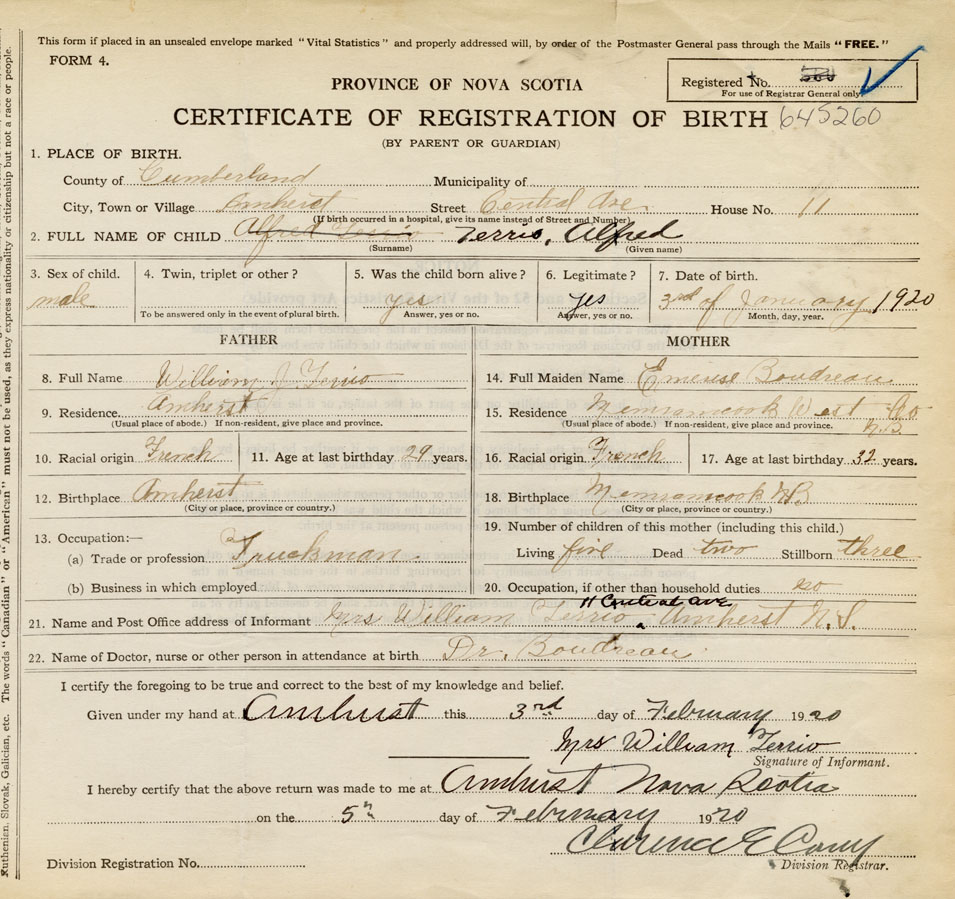 This form if placed in an unsealed envelope marked "Vital Statistics" and properly addressed will, by order of the Postmaster General pass through the Mails "FREE."
FORM 4.
Registered No.
For use of Registrar General only.
PROVINCE OF NOVA SCOTIA
CERTIFICATE OF REGISTRATION OF BIRTH 645260
(BY PARENT OR GUARDIAN)
1. PLACE OF BIRTH.
County of Cumberland Municipality of
City, Town or Village Amherst Street Central Ave. House No. 11
(If birth occurred in a hospital, give its name instead of Street and Number)
2. FULL NAME OF CHILD Alfred Terrio Terrio, Alfred
(Surname) (Given name)
3. Sex of child. 4. Twin, triplet or other? 5. Was the child born alive? 6. Legitimate? 7. Date of birth.
male yes yes 3rd of January 1920
To be answered only in the event of plural birth. Answer, yes or no. Answer, yes or no. Month, day, year.
FATHER
8. Full Name William J. Terrio
9. Residence. Amherst
(Usual place of abode.) If non-resident, give place and province.
10. Racial origin French 11. Age at last birthday 29 years.
12. Birthplace Amherst
(City or place, province or country.)
13. Occupation:—
(a) Trade or profession Truckman
(b) Business in which employed
MOTHER
14. Full Maiden Name Boudreau
15. Residence Memramcook West Co
N.B.
(Usual place of abode.) If non-resident, give place and province.
16. Racial origin French 17. Age at last birthday 32 years.
18. Birthplace Memramcook N.B
(City or place, province or country.)
19. Number of children of this mother (including this child.)
Living five Dead two Stillborn three
20. Occupation, if other than household duties no
11 Central ave
21. Name and Post Office address of Informant Mrs William Terrio Amherst N.S.
22. Name of Doctor, nurse or other person in attendance at birth Dr. Boudreau
I certify the foregoing to be true and correct to the best of my knowledge and belief.
Given under my hand at Amherst this 3rd day of February 1920
Mrs William Terrio
Signature of Informant.
I hereby certify that the above return was made to me at Amherst Nova Scotia
on the 5th day of February 1920
Clarence E
Division Registrar.
Division Registration No.
Ruthenien, Slovak, Galician, etc. The words "Canadian" or "American" must not be used, as they express nationality or citizenship but not a race or people.